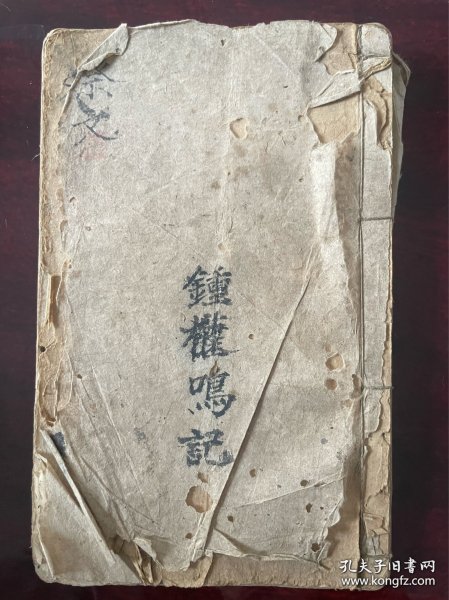 祭文
鍾權鳴記
孔夫子旧书网
www.kongfz.com